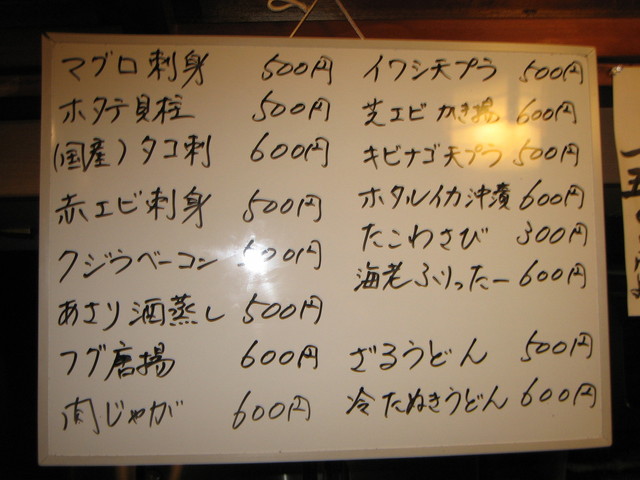 マグロ刺身 500円
ホタテ貝柱 500円
(国産)タコ刺 600円
赤エビ刺身 500円
クジラベーコン 500円
あさり酒蒸し 500円
フグ唐揚 600円
肉じゃが 600円
イワシ天プラ 500円
芝エビかき揚 600円
キビナゴ天プラ 500円
ホタルイカ沖漬 600円
たこわさび 300円
海老ふりったー 600円
ざるうどん 500円
冷たぬきうどん 600円